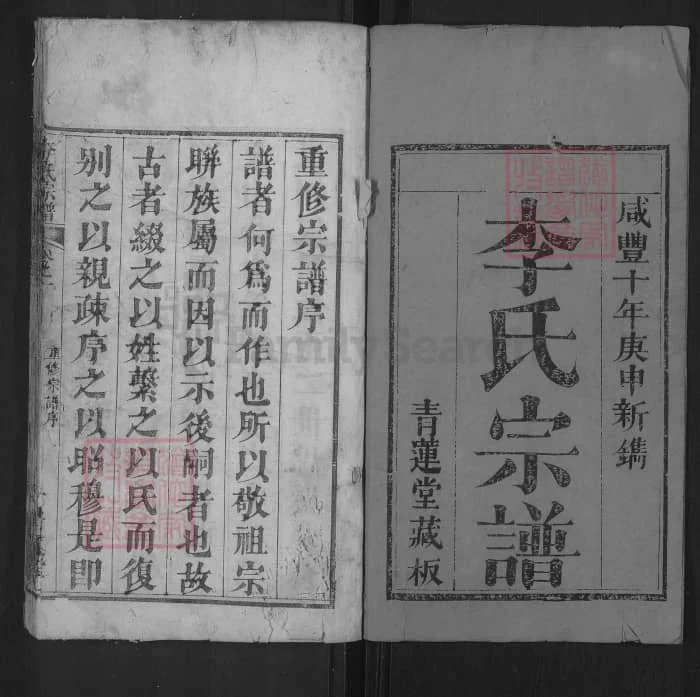 咸豐十年庚申新鐫
李氏宗譜
青蓮堂藏板
重修宗譜序
譜者何爲而作也所以敬祖宗
聯族屬而因以示後嗣者也故
古者綴之以姓繫之以氏而復
別之以親疎序之以昭穆是即
重修宗譜序
FamilySearch